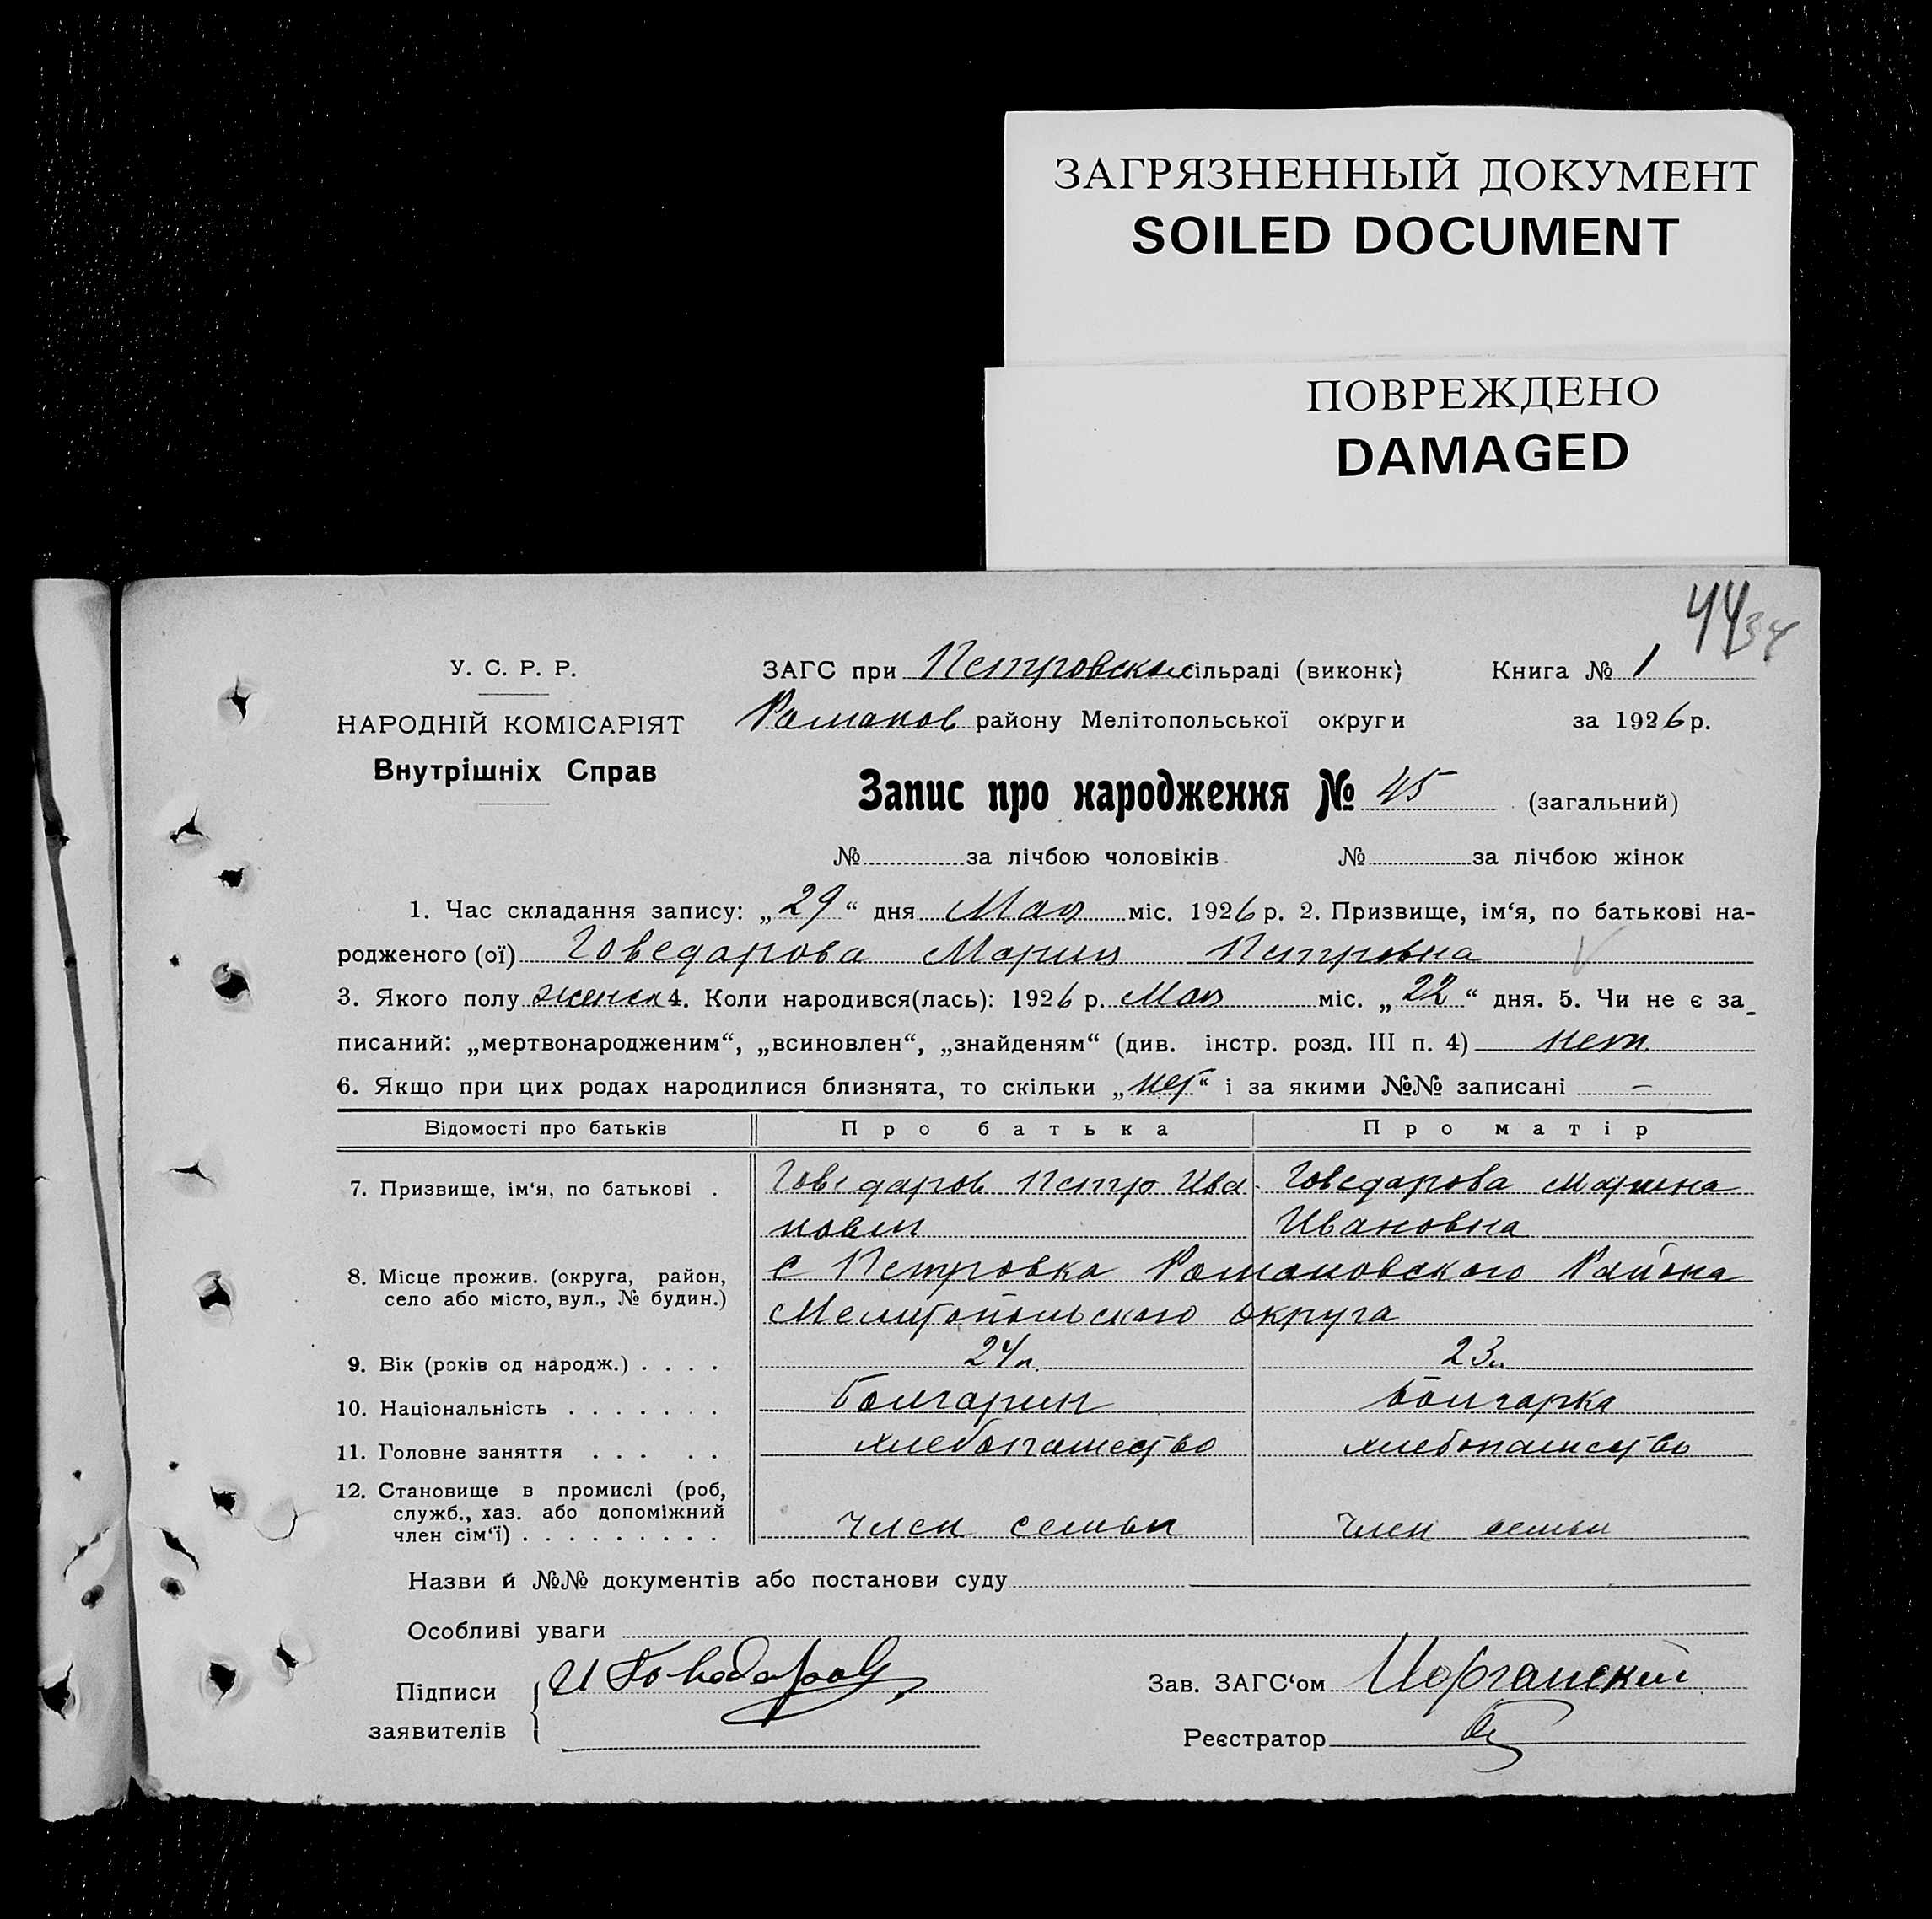 ЗАГРЯЗНЕННЫЙ ДОКУМЕНТ
SOILED DOCUMENT
ПОВРЕЖДЕНО
DAMAGED
44 34
У. С. Р. Р.
НАРОДНІЙ КОМІСАРІЯТ
Внутрішніх Справ
ЗАГС при Петровском сільраді (виконк)
Романов району Мелітопольської округи
Книга № 1
за 1926 р.
Запис про народження № 45 (загальний)
№ за лічбою чоловіків № за лічбою жінок
1. Час складання запису: „29“ дня Мая міс. 1926 р. 2. Призвище, ім‘я, по батькові на-
родженого (ої) Говедарова Мария Петровна
3. Якого полу женск 4. Коли народився(лась): 1926 р. Мая міс. „22“ дня. 5. Чи не є за-
писаний: „мертвонародженим“, „всиновлен“, „знайденям“ (див. інстр. розд. III п. 4) нет
6. Якщо при цих родах народилися близнята, то скільки „нет“ і за якими №№ записані –
Відомості про батьків Про батька Про матір
7. Призвище, ім‘я, по батькові . Говедаров Петр Ива Говедарова Марина
нович Ивановна
8. Місце прожив. (округа, район, с Петровка Романовского Района
село або місто, вул., № будин.) Мелитопольского округа
9. Вік (років од народж.) . . . . 24 л. 23 л.
10. Національність . . . . . . . Болгарин болгарка
11. Головне заняття . . . . . хлебопашество хлебопашество
12. Становище в промислі (роб,
служб., хаз. або допоміжний
член сім‘ї) . . . . . . . . . член семьи член семьи
Назви й №№ документів або постанови суду
Особливі уваги
Підписи
заявителів
И Говедаров
Зав. ЗАГС‘ом
Реєстратор